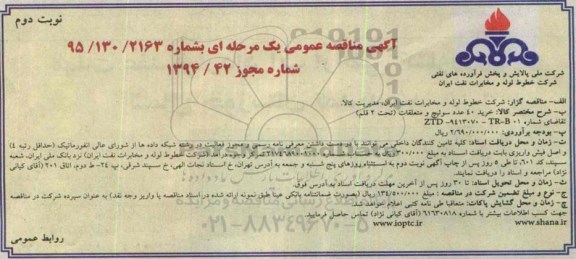 نوبت دوم
آگهی مناقصه عمومی یک مرحله ای بشماره ۲۱۶۳/ ۱۳۰/ ۹۵
شماره مجوز ۴۲ / ۱۳۹۴
شرکت ملی پالایش و پخش فرآورده های نفتی
شرکت خطوط لوله و مخابرات نفت ایران
الف- مناقصه گزار: شرکت خطوط لوله و مخابرات نفت ایران، مدیریت کالا.
ب- شرح مختصر کالا: خرید ۴۰ عدد سوئیچ و متعلقات (تحت ۲ قلم)
تقاضای شماره ZTD -۹۴۱۳۰۷۰ - TR-B۰۱
پ- بودجه برآوردی: ۲/۶۹۰/۰۰۰/۰۰۰ ریال
ت- زمان و محل دریافت اسناد: کلیه تامین کنندگان داخلی می توانند با در دست داشتن معرفی نامه رسمی و مجوز فعالیت در رشته شبکه داده ها از شورای عالی انفورماتیک (حداقل رتبه ۴)
و اصل فیش واریزی بابت دریافت اسناد به مبلغ ۳۰۰/۰۰۰ ریال به شماره حساب تمرکز وجوه درآمد (شرکت خطوط لوله و مخابرات نفت ایران) نزد بانک ملی ایران، شعبه
سپهبد، کد ۶۰۱، تا طی ۵ روز پس از چاپ آگهی نوبت دوم به آدرس تهران، خ استاد نجات الهی، خ سپند شرقی، پ ۲۴، ط دوم، اتاق ۲۰۱ (آقای کیانی
نژاد) مراجعه و اسناد را دریافت نمایند.
ث- زمان و محل تحویل اسناد: تا ۳۰ روز پس از آخرین مهلت دریافت اسناد به آدرس فوق.
ج- نوع و مبلغ تضمین شرکت در مناقصه : مبلغ ۱۳۴/۵۰۰/۰۰۰ ریال (بصورت ضمانتنامه بانکی عینا طبق نمونه ارائه شده در اسناد مناقصه یا واریز وجه نقد) به عنوان سپرده شرکت در مناقصه
چ- زمان و محل گشایش پاکات: متعاقبا طی نامه کتبی اعلام خواهد شد.
جهت کسب اطلاعات بیشتر با شماره ۶۱۶۳۰۸۱۸ (آقای کیانی نژاد) تماس حاصل فرمایید.
www.shana.ir
www.ioptc.ir
روابط عمومی
۰۲۱-۸۸۳۴۹۶۷۰-۵